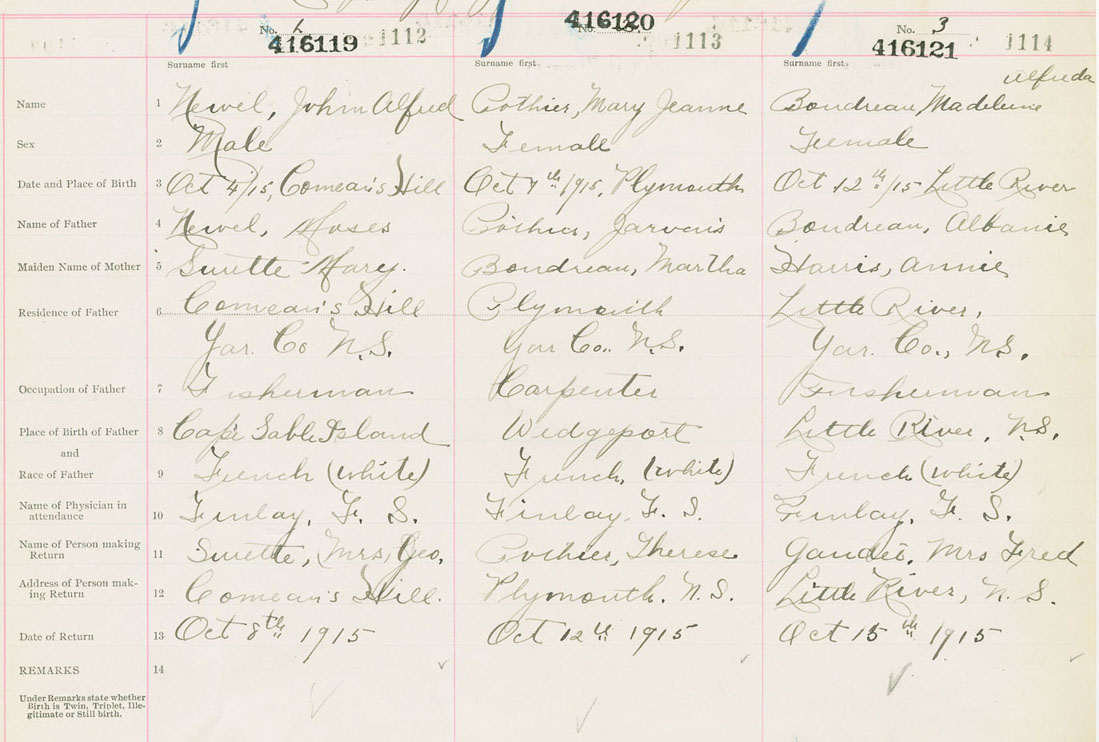 No. 1 416119 1112 416120 No. 1113 No. 3 416121 1114
Surname first Surname first Surname first
Alfreda
Name 1 Newel, John Alfred Pothier, Mary Jeanne Boudreau, Madeleine
Sex 2 Male Female Female
Date and Place of Birth 3 Oct 4/15, Comeau's Hill Oct 7th 1915, Plymouth Oct 12th/15 Little River
Name of Father 4 Newel, Moses Pothier, Jarvais Boudreau, Albanie
Maiden Name of Mother 5 Surette Mary. Boudreau, Martha Harris, Annie
Residence of Father 6 Comeau's Hill Plymouth Little River,
Yar. Co N.S. Yar Co. N.S. Yar. Co., N.S.
Occupation of Father 7 Fisherman Carpenter Fisherman
Place of Birth of Father 8 Cape Sable Island Wedgeport Little River, N.S.
and
Race of Father 9 French (white) French, (white) French (white)
Name of Physician in
attendance 10 Finlay, F. S. Finlay, F. S. Finlay, F. S.
Name of Person making
Return 11 Surette, Mrs, Geo. Pothier, Therese Mrs Fred
Address of Person mak-
ing Return 12 Comeau's Hill. Plymouth. N.S. Little River, N. S.
Date of Return 13 Oct 8th 1915 Oct 12th 1915 Oct 15th 1915
REMARKS 14
Under Remarks state whether
Birth is Twin, Triplet, Ille-
gitimate or Still birth.